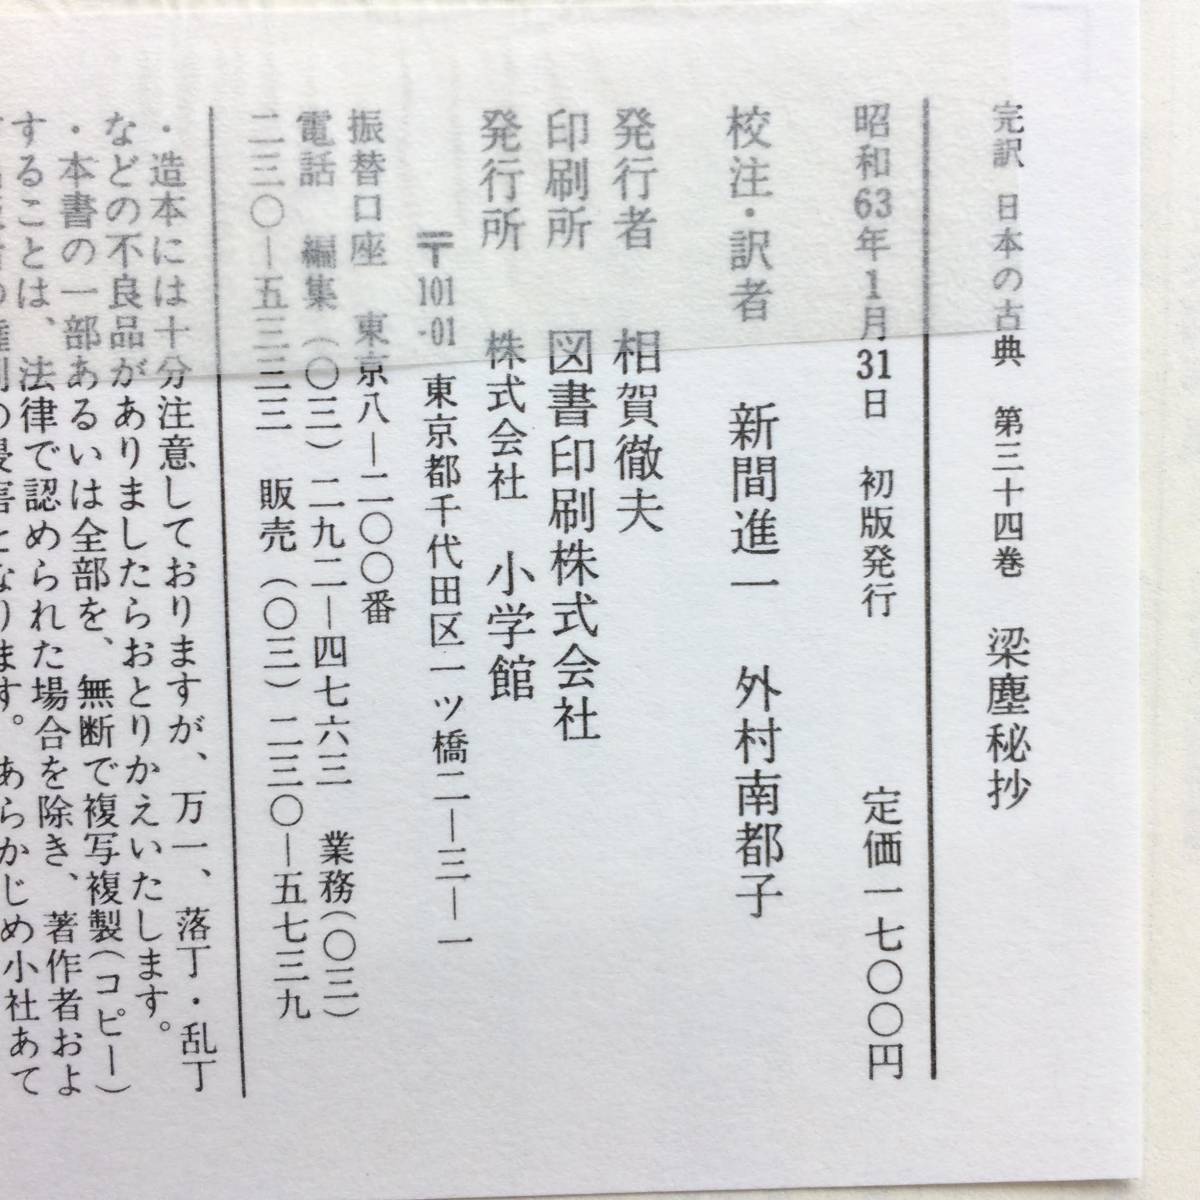 完訳 日本の古典 第三十四巻 梁塵秘抄
昭和63年1月31日 初版発行 定価一七〇〇円
校注・訳者 新間進一 外村南都子
発行者 相賀徹夫
印刷所 図書印刷株式会社
発行所 株式会社 小学館
〒101-01 東京都千代田区一ツ橋二―三―一
振替口座 東京八―二〇〇番
電話 編集(〇三)二九二―四七六三 業務(〇三)
二三〇―五三三三 販売(〇三)二三〇―五七三九
・造本には十分注意しておりますが、万一、落丁・乱丁
などの不良品がありましたらおとりかえいたします。
・本書の一部あるいは全部を、無断で複写複製(コピー)
することは、法律で認められた場合を除き、著作者およ
の侵害となります。あらかじめ小社あて